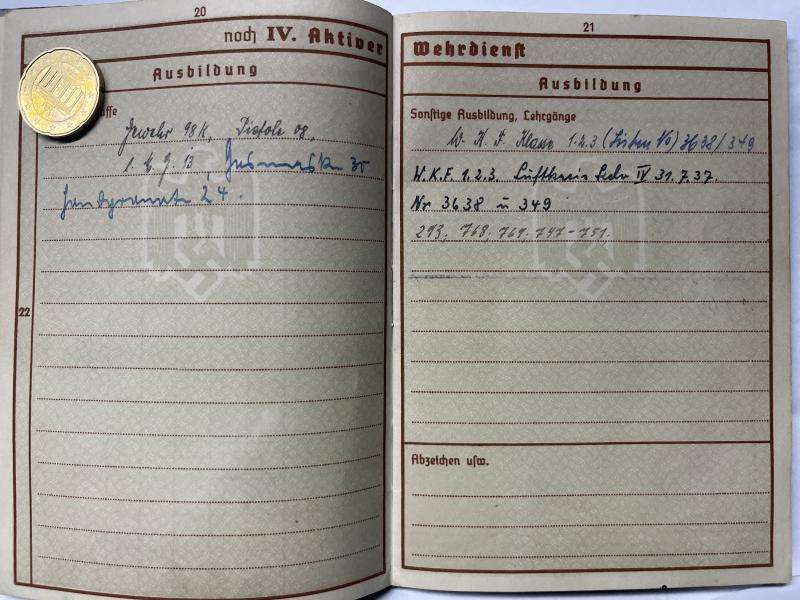 20
noch IV. Aktiver
Ausbildung
ffe
Gewehr 98k, Pistole 08,
Gasmaske 30
Handgranate 24.
22
21
Wehrdienst
Ausbildung
Sonstige Ausbildung, Lehrgänge
W. K. F. Klasse 1.2.3 (Listen No) 3638/349
W.K.F. 1.2.3. Luftkreis Kdo IV 31.7.37.
Nr 3638 u 349
293, 768, 769, 747-751.
Abzeichen usw.